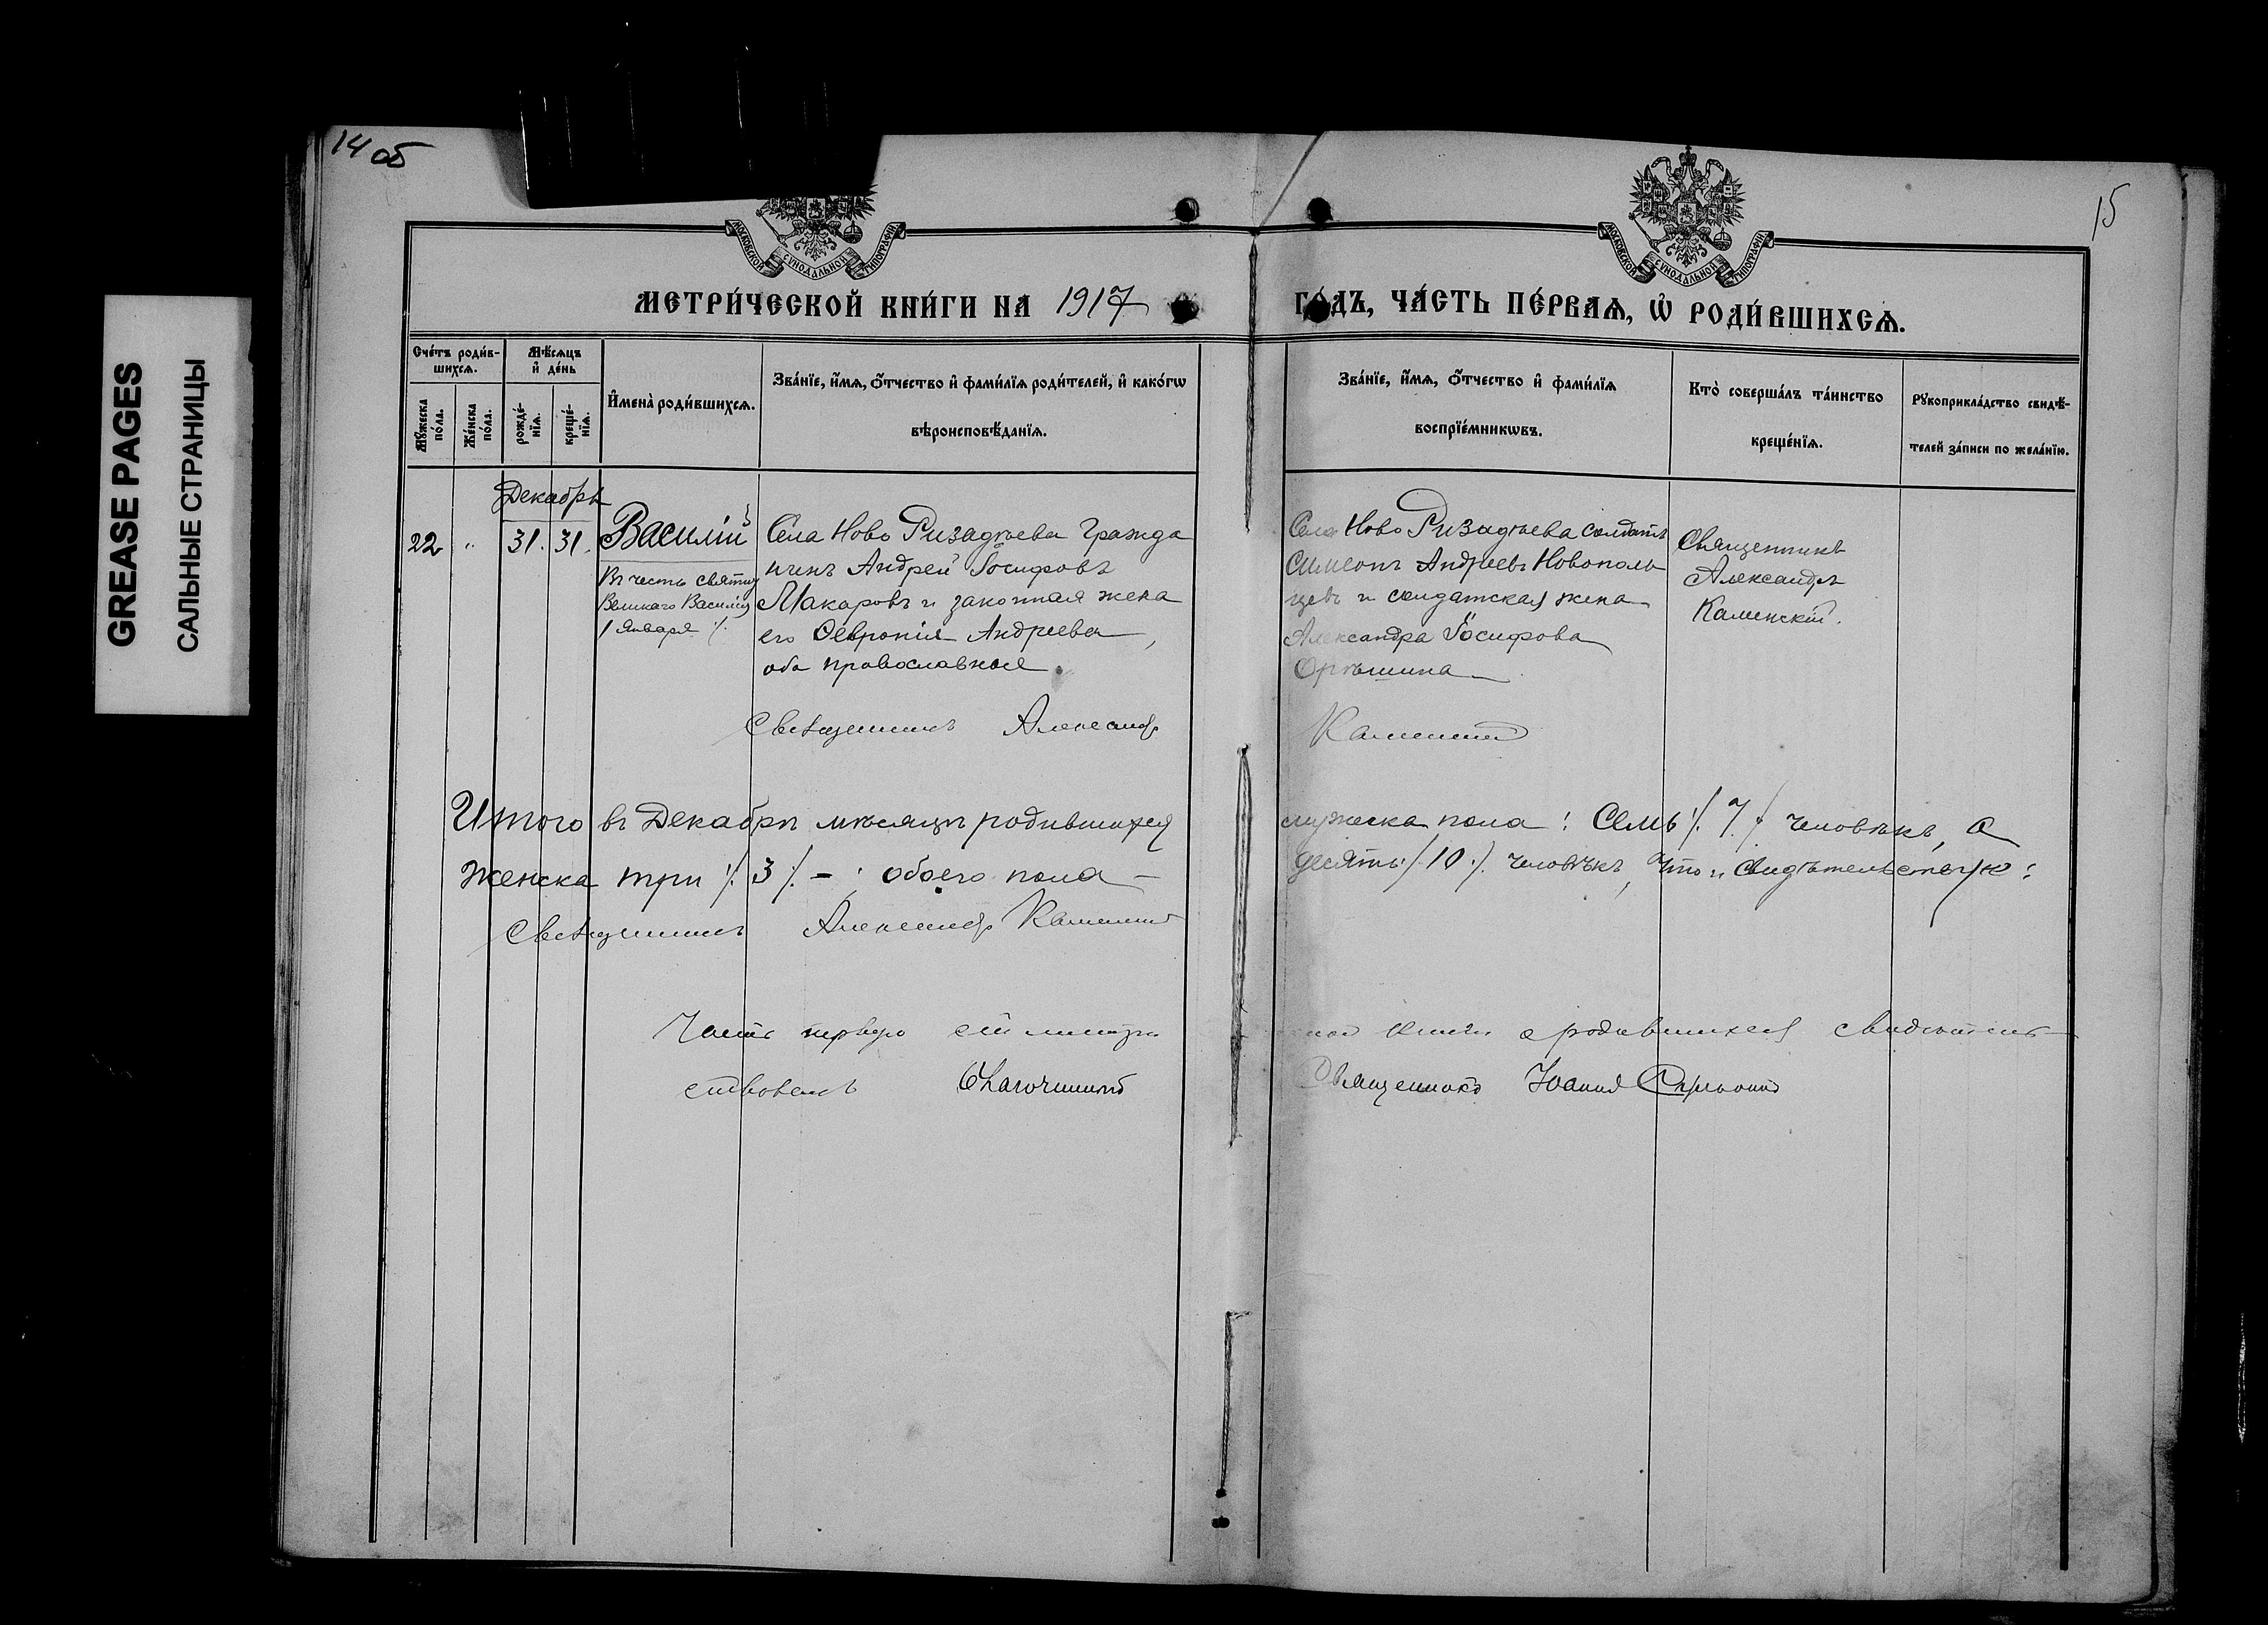 14 об
15
GREASE PAGES
САЛЬНЫЕ СТРАНИЦЫ
МОСКОВСКОЙ СѴНОДАЛЬНОЙ ТИПОГРАФІИ
МОСКОВСКОЙ СѴНОДАЛЬНОЙ ТИПОГРАФІИ
МЕТРИ́ЧЕСКОЙ КНИ́ГИ НА 1917 ГО́ДЪ, ЧА́СТЬ ПЕ́РВАѦ, Ѽ РОДИ́ВШИХСѦ.
Сче́тъ роди́в-
шихсѧ.
Мѣ́сѧцъ
и҆ де́нь
Мꙋ́жеска
по́ла.
Же́нска
по́ла.
рожде́-
нїѧ.
креще́-
нїѧ.
И҆мена̀ роди́вшихсѧ.
Зва́нїе, и҆́мѧ, ѻ҆́тчество и҆ фами́лїѧ роди́телей, и҆ како́гѡ
вѣроисповѣ́данїѧ.
Зва́нїе, и҆́мѧ, ѻ҆́тчество и҆ фами́лїѧ
воспрїе́мникѡвъ.
Кто̀ соверша́лъ та́инство
креще́нїѧ.
Рꙋкоприкла́дство свидѣ́-
телей за́писи по жела́нїю.
Декабрь
22 " 31. 31.
Василій
Въ честь святит
Великаго Василія
1 Января ./.
Села Ново Ризадѣева Гражда
нинъ Андрей Іосифовъ
Макаровъ и законная жена
его Февронія Андреева,
оба православные.
Села Ново Ризадѣева солдатъ
Симеонъ Андреевъ Новополь
цевъ и солдатская жена
Александра Іосифова
Орѣшина
Священникъ
Александръ
Каменскій.
Священникъ Александръ Каменскій
Итого въ Декабрѣ мѣсяцѣ родившихся мужеска пола: Семь ./. 7 ./. человѣкъ, а
женска три ./. 3 ./. - ; обоего пола - десять ./. 10 ./. человѣкъ, что и свидѣтельствую:
Священникъ Александръ Каменскій
Часть первую сей метри ной книги о родившихся свидѣтель-
ствовалъ Благочинный Священникъ Іоаннъ